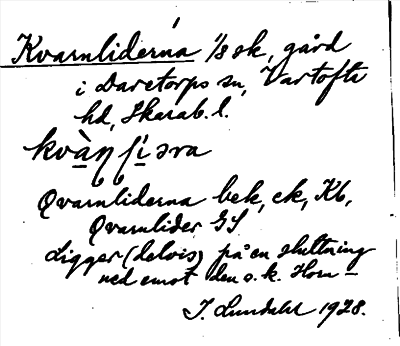 Kvarnliderna 1/8 sk, gård
i Daretorps sn, Vartofta
hd, Skarab. l.
Qvarnliderna bek, ek, Kb,
Qvarnlider GS
Ligger (delvis) på en sluttning
ned emot den s. k. Horn-
J. Lundahl 1928.